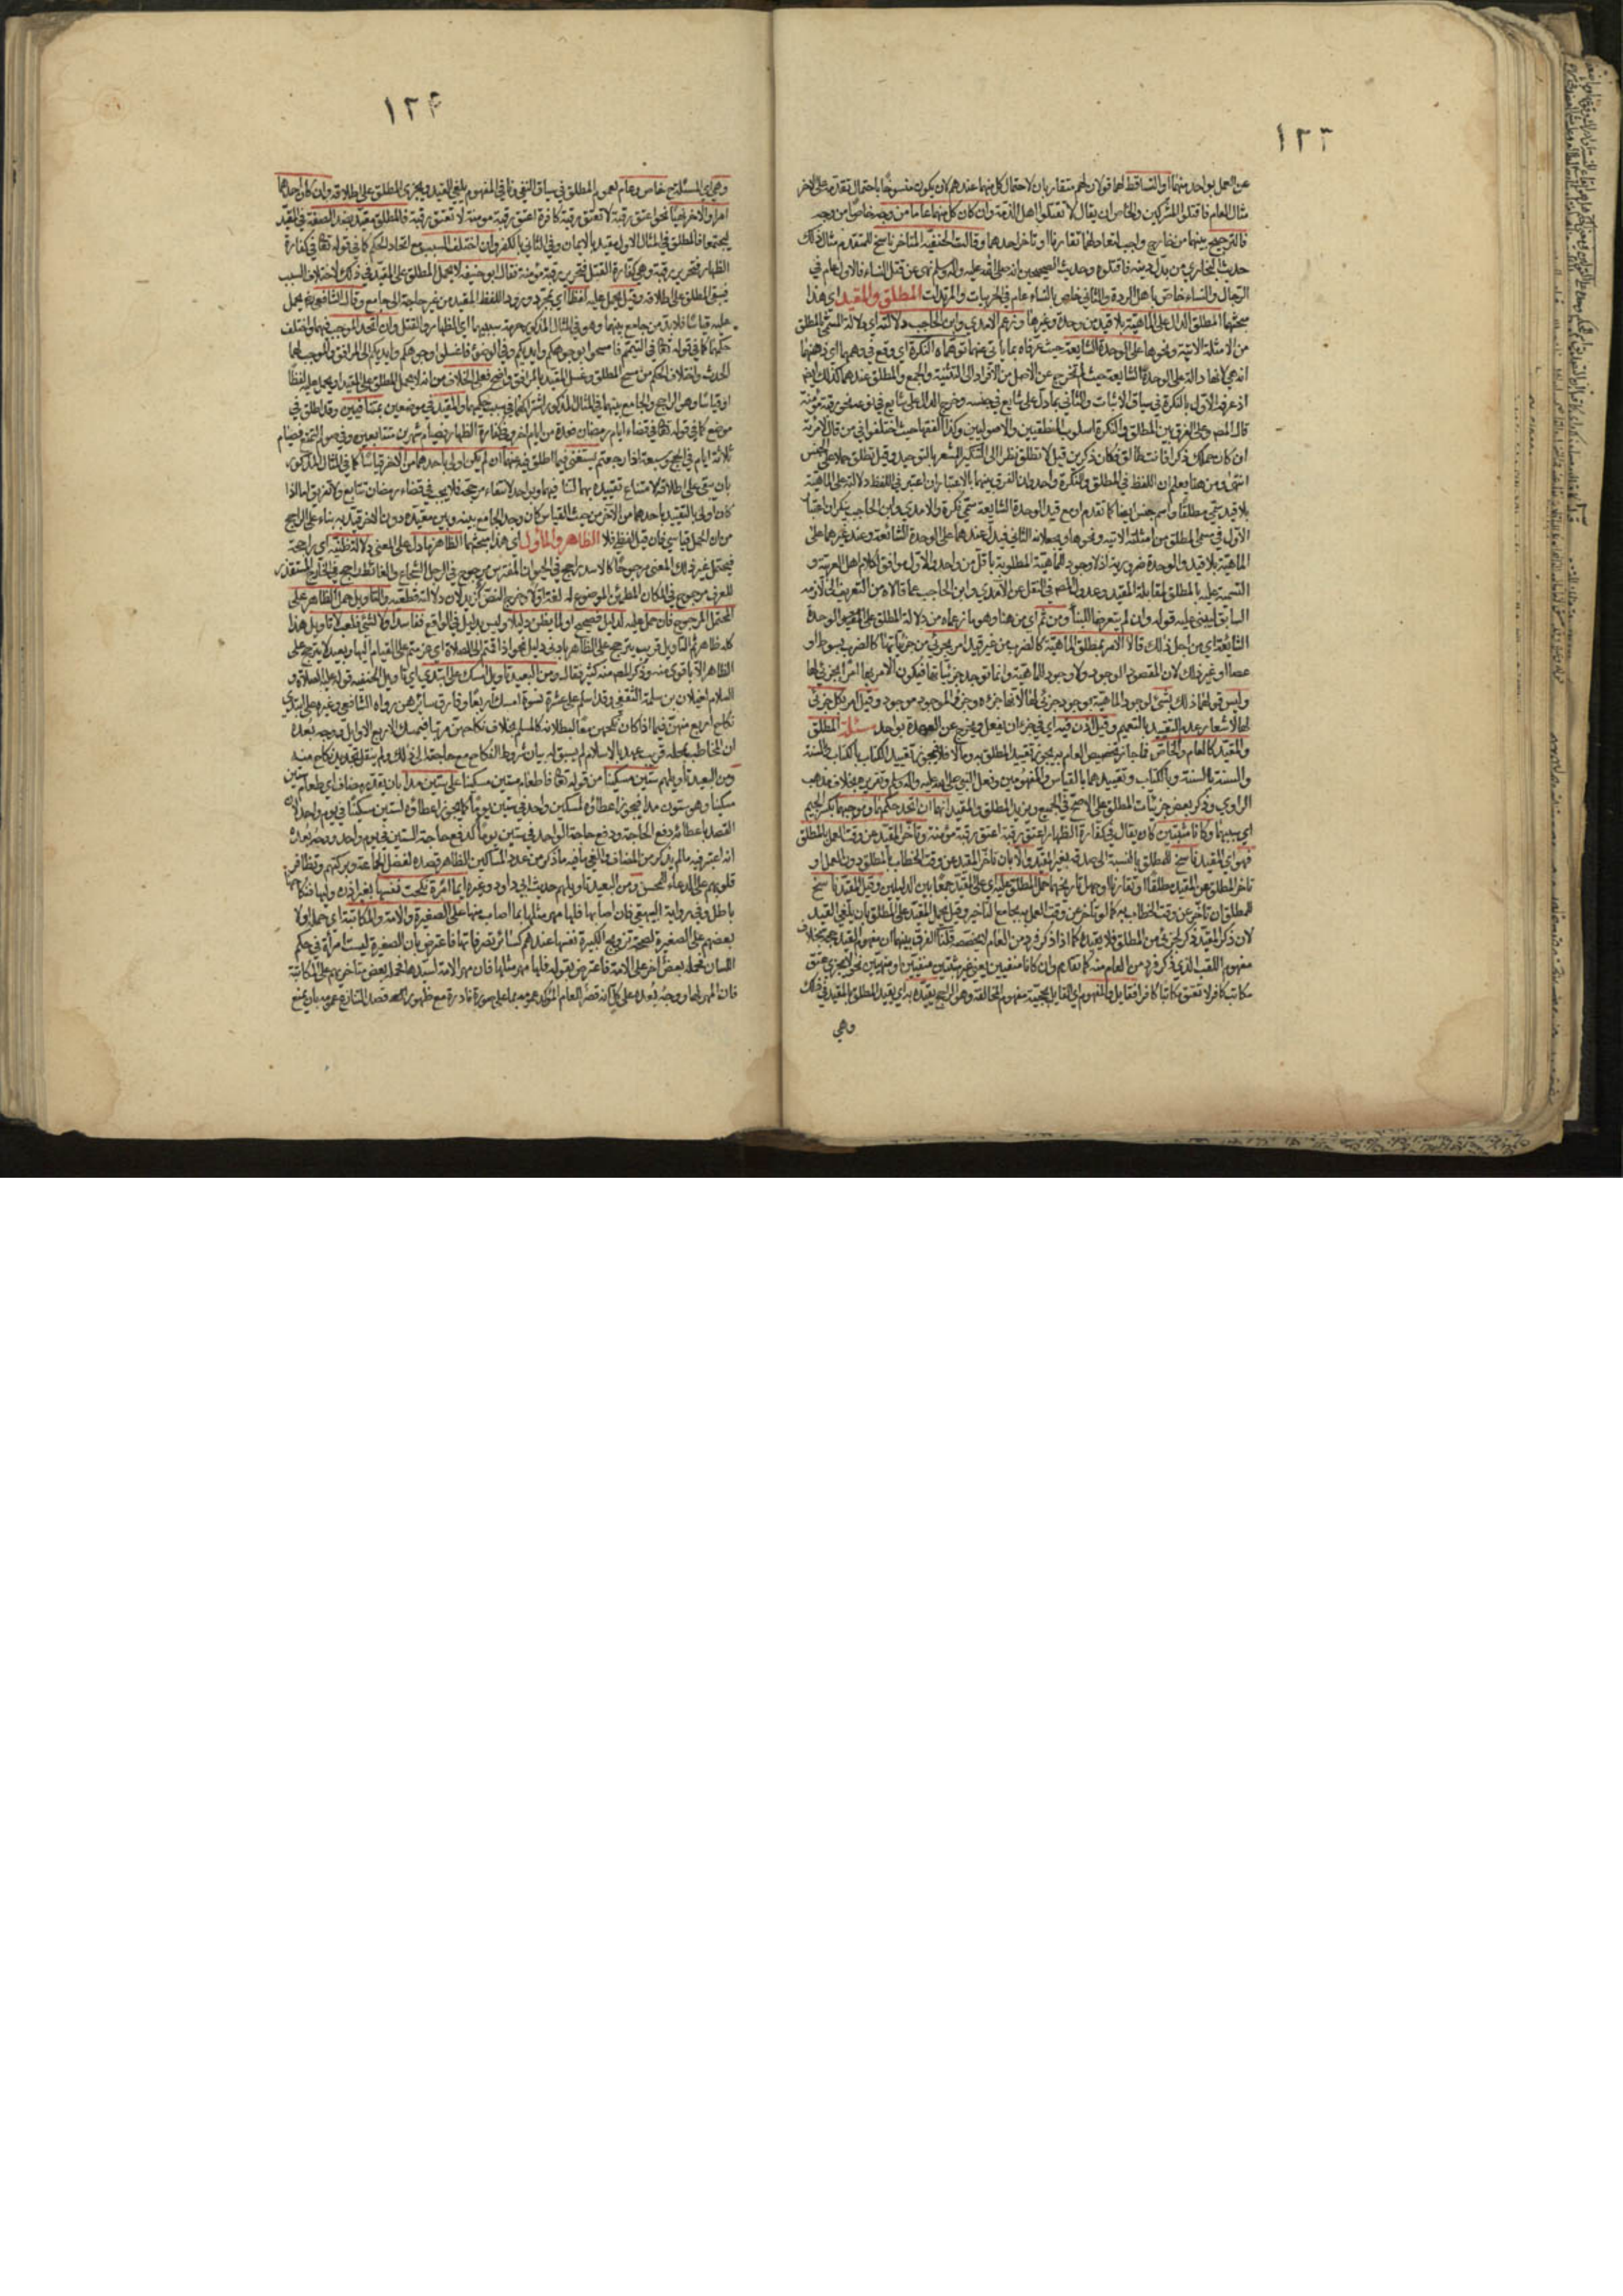 ١٢٣
عن العمل بواحد منهما او التساقط لهما قولان لهم متقاربان لاحتمال كل منهما عندهم لان يكون منسوخا باحتمال تقدمه على الاخر
مثال العام فاقتلوا المشركين والخاص ان يقال لا تقتلوا اهل الذمة وان كان كل منهما عاما من وجه خاصا من وجه
فالترجيح بينهما من خارج واجب لتعادلهما تقارنا او تاخر احدهما وقالت الحنفية المتاخر ناسخ للمتقدم مثال ذلك
حديث البخاري من بدل دينه فاقتلوه وحديث الصحيحين انه صلى الله عليه واله وسلم نهى عن قتل النساء فالاول عام في
الرجال والنساء خاص باهل الردة والثاني خاص بالنساء عام في الحربيات والمرتدات المطلق والمقيد اي هذا
مبحثهما المطلق الدال على الماهية بلا قيد من وحدة وغيرها وزعم الامدي وابن الحاجب دلالته اي دلالة المسمى بالمطلق
من الامثلة الاتية ونحوها على الوحدة الشايعة حيث عرفاه بما ياتي عنهما توهماه النكرة اي وقع في وهمهما اي ذهنهما
انه هي لانها دالة على الوحدة الشايعة حيث لم تخرج عن الاصل من الافراد الى التثنية والجمع والمطلق عندهما كذلك ايضا
اذ عرفه الاول بالنكرة في سياق الاثبات والثاني بما دل على شايع في جنسه وخرج الدال على شايع في نوعه نحو رقبة مؤمنة
قال المصـ وعلى الفرق بين المطلق والنكرة اسلوب المنطقيين والاصوليين وكذا الفقها حيث اختلفوا في من قال لامراته
ان كان حملك ذكرا فانت طالق فكان ذكرين قيل لا تطلق نظرا الى التنكير المشعر بالتوحيد وقيل تطلق حملا على الجنس
انتهى ومن هنا يعلم ان اللفظ في المطلق والنكرة واحد وان الفرق بينهما بالاعتبار ان اعتبر في اللفظ دلالته على الماهية
بلا قيد سمي مطلقا واسم جنس ايضا كما تقدم او مع قيد الوحدة الشايعة سمي نكرة والامدي وابن الحاجب ينكران اعتبار
الاول في مسمى المطلق من امثلته الاتية ونحوها ويجعلانه الثاني فيدل عندهما على الوحدة الشائعة وعند غيرهما على
الماهية بلا قيد والوحدة ضرورية اذ لا وجود للماهية المطلوبة باقل من واحد والاول موافق لكلام اهل العربية و
التسمية عليه بالمطلق لمقابلة المقيد وعدول المصـ في النقل عن الامدي وابن الحاجب عما قالاه من التعريف الى لازمه
السابق ليبني عليه قوله وان لم يتعرضا للبنا ومن ثم اي من هنا وهو ما زعماه من دلالة المطلق على الوحدة
الشايعة اي من اجل ذلك قالا الامر بمطلق الماهية كالضرب من غير قيد امر بجزئي من جزئياتها كالضرب بسوط او
عصا او غير ذلك لان المقصود الوجود ولا وجود للماهية وانما توجد جزئياتها فيكون الامر بها امرا بجزئي لها
وليس قولهما ذلك بشيء لوجود الماهية بوجود جزئي لها لانها جزؤه وجزؤ الموجود موجود وقيل امر بكل جزئي
لها لاشعار عدم التقييد بالتعميم وقيل اذن فيه اي في جزء ان يفعل ويخرج عن العهدة بواحد مسئلة المطلق
والمقيد كالعام والخاص فما جاز تخصيص العام به يجوز تقييد المطلق به وما لا فلا فيجوز تقييد الكتاب بالكتاب والسنة
والسنة بالسنة وبالكتاب وتقييدهما بالقياس والمفهومين وفعل النبي صلى الله عليه واله وسلم وتقريره بخلاف مذهب
الراوي وذكر بعض جزئيات المطلق على الاصح في الجميع ويزيد المطلق والمقيد انهما ان اتحد حكمهما وموجبهما بكسر الجيم
اي سببهما وكانا مثبتين كان يقال في كفارة الظهار اعتق رقبة اعتق رقبة مؤمنة وتاخر المقيد عن وقت العمل بالمطلق
فهو اي المقيد ناسخ للمطلق بالنسبة الى صدقه بغير المقيد والا بان تاخر المقيد عن وقت الخطاب بالمطلق دون العمل او
تاخر المطلق عن المقيد مطلقا او تقارنا او جهل تاريخهما حمل المطلق عليه اي على المقيد جمعا بين الدليلين وقيل المقيد ناسخ
للمطلق ان تاخر عن وقت الخطاب به كما لو تاخر عن وقت العمل به بجامع التاخير وقيل يحمل المقيد على المطلق بان يلغى القيد
لان ذكر المقيد ذكر لجزئي من المطلق فلا يقيده كما اذا ذكر فرد من العام لا يخصصه قلنا الفرق بينهما ان مفهوم القيد حجة بخلاف
مفهوم اللقب الذي ذكر فرد من العام منه كما تقدم وان كانا منفيين يعني غير مثبتين منفيين او منهيين نحو لا يجزي عتق
مكاتب كافر لا تعتق مكاتبا كافرا فقايل المفهوم اي القايل بحجية مفهوم المخالفة وهو الراجح يقيده به اي يقيد المطلق بالمقيد في ذلك
وهي
١٢٤
وهي اي المسئلة ح خاص وعام لعموم المطلق في سياق النفي ونافي المفهوم يلغي القيد ويجري المطلق على اطلاقه وان كان احدهما
امرا والاخر نهيا نحو اعتق رقبة لا تعتق رقبة كافرة اعتق رقبة مومنة لا تعتق رقبة فالمطلق مقيد بضد الصفة في المقيد
ليجتمعا فالمطلق في المثال الاول مقيد بالايمان وفي الثاني بالكفر وان اختلف السبب مع اتحاد الحكم كما في قوله تعالى في كفارة
الظهار فتحرير رقبة وفي كفارة القتل فتحرير رقبة مؤمنة فقال ابو حنيفة لا يحمل المطلق على المقيد في ذلك لاختلاف السبب
فيبقى المطلق على اطلاقه وقيل يحمل عليه لفظا اي بمجرد ورود اللفظ المقيد من غير حاجة الى جامع وقال الشافعي رض يحمل
عليه قياسا فلا بد من جامع بينهما وهو في المثال المذكور حرمة سببهما اي الظهار والقتل وان اتحد الموجب فيهما واختلف
حكمهما كما في قوله تعالى في التيمم فامسحوا بوجوهكم وايديكم وفي الوضوء فاغسلوا وجوهكم وايديكم الى المرافق والموجب لهما
الحدث واختلاف الحكم من مسح المطلق وغسل المقيد بالمرافق واضح فعلى الخلاف من انه لا يحمل المطلق على المقيد او يحمل عليه لفظا
او قياسا وهو الراجح والجامع بينهما في المثال المذكور اشتراكهما في سبب حكمهما والمقيد في موضعين بمتنافيين وقد اطلق في
موضع كما في قوله تعالى في قضاء ايام رمضان فعدة من ايام اخر وفي كفارة الظهار فصيام شهرين متتابعين وفي صوم التمتع فصيام
ثلاثة ايام في الحج وسبعة اذا رجعتم يستغني فيما اطلق فيه عنهما ان لم يكن اولى باحدهما من الاخر قياسا كما في المثال المذكور
بان يبقى على اطلاقه لامتناع تقييده بهما لتنافيهما وبواحد لانتفاء مرجحه فلا يجب في قضاء رمضان تتابع ولا تفريق اما اذا
كان اولى بالتقييد باحدهما من الاخر من حيث القياس كان وجد الجامع بينه وبين مقيده دون الاخر قيد به بناء على الراجح
من ان الحمل قياسي فان قيل لفظي فلا الظاهر والمأول اي هذا مبحثهما الظاهر ما دل على المعنى دلالة ظنية اي راجحة
فيحتمل غير ذلك المعنى مرجوحا كالاسد راجح في الحيوان المفترس مرجوح في الرجل الشجاع والغائط راجح في الخارج المستقذر
للعرف مرجوح في المكان المطمئن الموضوع له لغة اولا وخرج النص كزيد لان دلالته قطعية والتاويل حمل الظاهر على
المحتمل المرجوح فان حمل عليه لدليل فصحيح او لما يظن دليلا وليس بدليل في الواقع ففاسد او لا لشيء فلعب لا تاويل هذا
كله ظاهر ثم التاويل قريب يترجح على الظاهر بادنى دليل نحو اذا قمتم الى الصلاة اي عزمتم على القيام اليها وبعيد لا يترجح على
الظاهر الا باقوى منه وذكر المصـ منه كثيرا فقال ومن البعيد تاويل امسك على ابتدئ اي تاويل الحنفية قوله عليه الصلاة و
السلام لغيلان بن سلمة الثقفي وقد اسلم على عشرة نسوة امسك اربعا وفارق سائرهن رواه الشافعي وغيره على ابتدئ
نكاح اربع منهن فيما اذا كان نكحهن معا لبطلانه كالمسلم بخلاف نكاحهن مرتبا فيمسك الاربع الاوايل ووجه بعده
ان المخاطب بمحله قريب عهد بالاسلام لم يسبق له بيان شروط النكاح مع حاجته الى ذلك ولم ينقل تجديد نكاح منه
ومن البعيد تاويلهم ستين مسكينا من قوله تعالى فاطعام ستين مسكينا على ستين مدا بان يقدر مضاف اي طعام ستين
مسكينا وهو ستون مدا فيجوز اعطاؤه لمسكين واحد في ستين يوما كما يجوز اعطاؤه لستين مسكينا في يوم واحد لان
القصد باعطائه دفع الحاجة ودفع حاجة الواحد في ستين يوما كدفع حاجة الستين في يوم واحد ووجه بعده
انه اعتبر فيه ما لم يذكر من المضاف والغي ما فيه ما ذكر من عدد المساكين الظاهر قصده لفضل الجماعة وبركتهم وتظافر
قلوبهم على الدعاء للمحسن ومن البعيد تاويلهم حديث ابي داود وغيره ايما امرأة نكحت نفسها بغير اذن وليها فنكاحها
باطل وفي رواية البيهقي فان اصابها فلها مهر مثلها بما اصاب منها على الصغيرة والامة والمكاتبة اي حمله اولا
بعضهم على الصغيرة لصحة تزويج الكبيرة نفسها عندهم كسائر تصرفاتها فاعترض بان الصغيرة ليست امرأة في حكم
اللسان فحمله بعض اخر على الامة فاعترض بقوله فلها مهر مثلها فان مهر الامة لسيدها فحمله بعض متاخريهم على المكاتبة
فان المهر لها ووجه بعده على كل انه قصر للعام المؤكد عمومه بما على صورة نادرة مع ظهور قصد الشارع عمومه بان يمنع